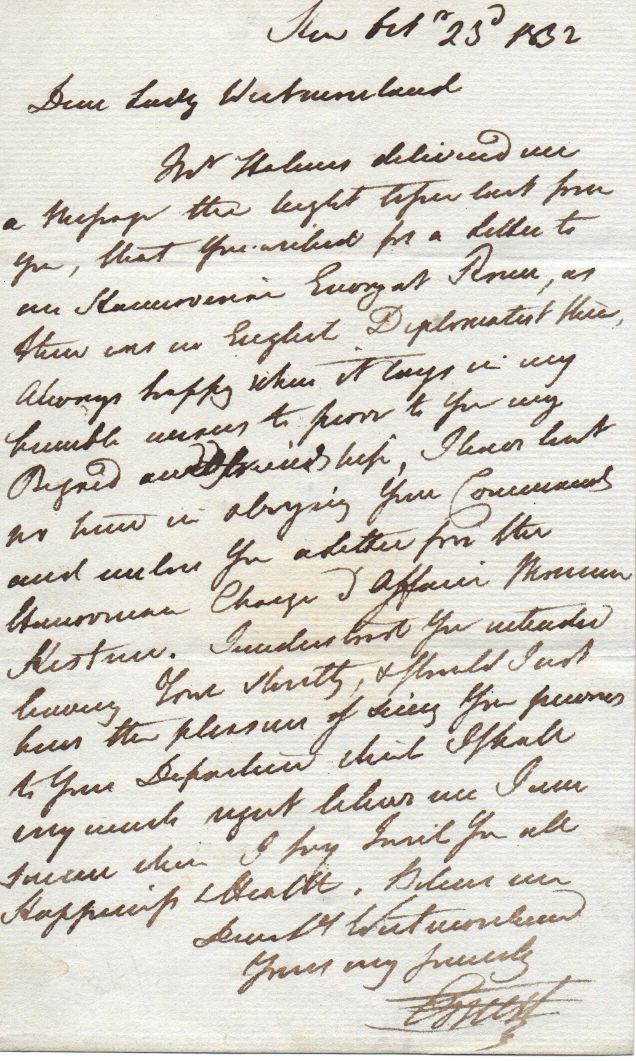 Kew Octr 23d 1832
Dear Lady Westmoreland
Mr Holmes delivered me
a Message the night before last from
you, that you wished for a letter to
our Hannoverian Envoy at Rome, as
there was no English Diplomatist there,
Always happy when it lays in my
humble means to proove to you my
Regard and friendship, I have lost
no time in obeying Your Commands
and inclose you a letter for the
Hannoverian Charge d'Affaire Monsieur
Kestner. I understood you intended
leaving Town shortly, & should I not
have the pleasure of seeing you previous
to Your Departure which I shall
very much regret believe me I am
sincere when I say I wish you all
Happiness & Health. Believe me
Dear Ly Westmoreland
Yours very sincerely
Ernest